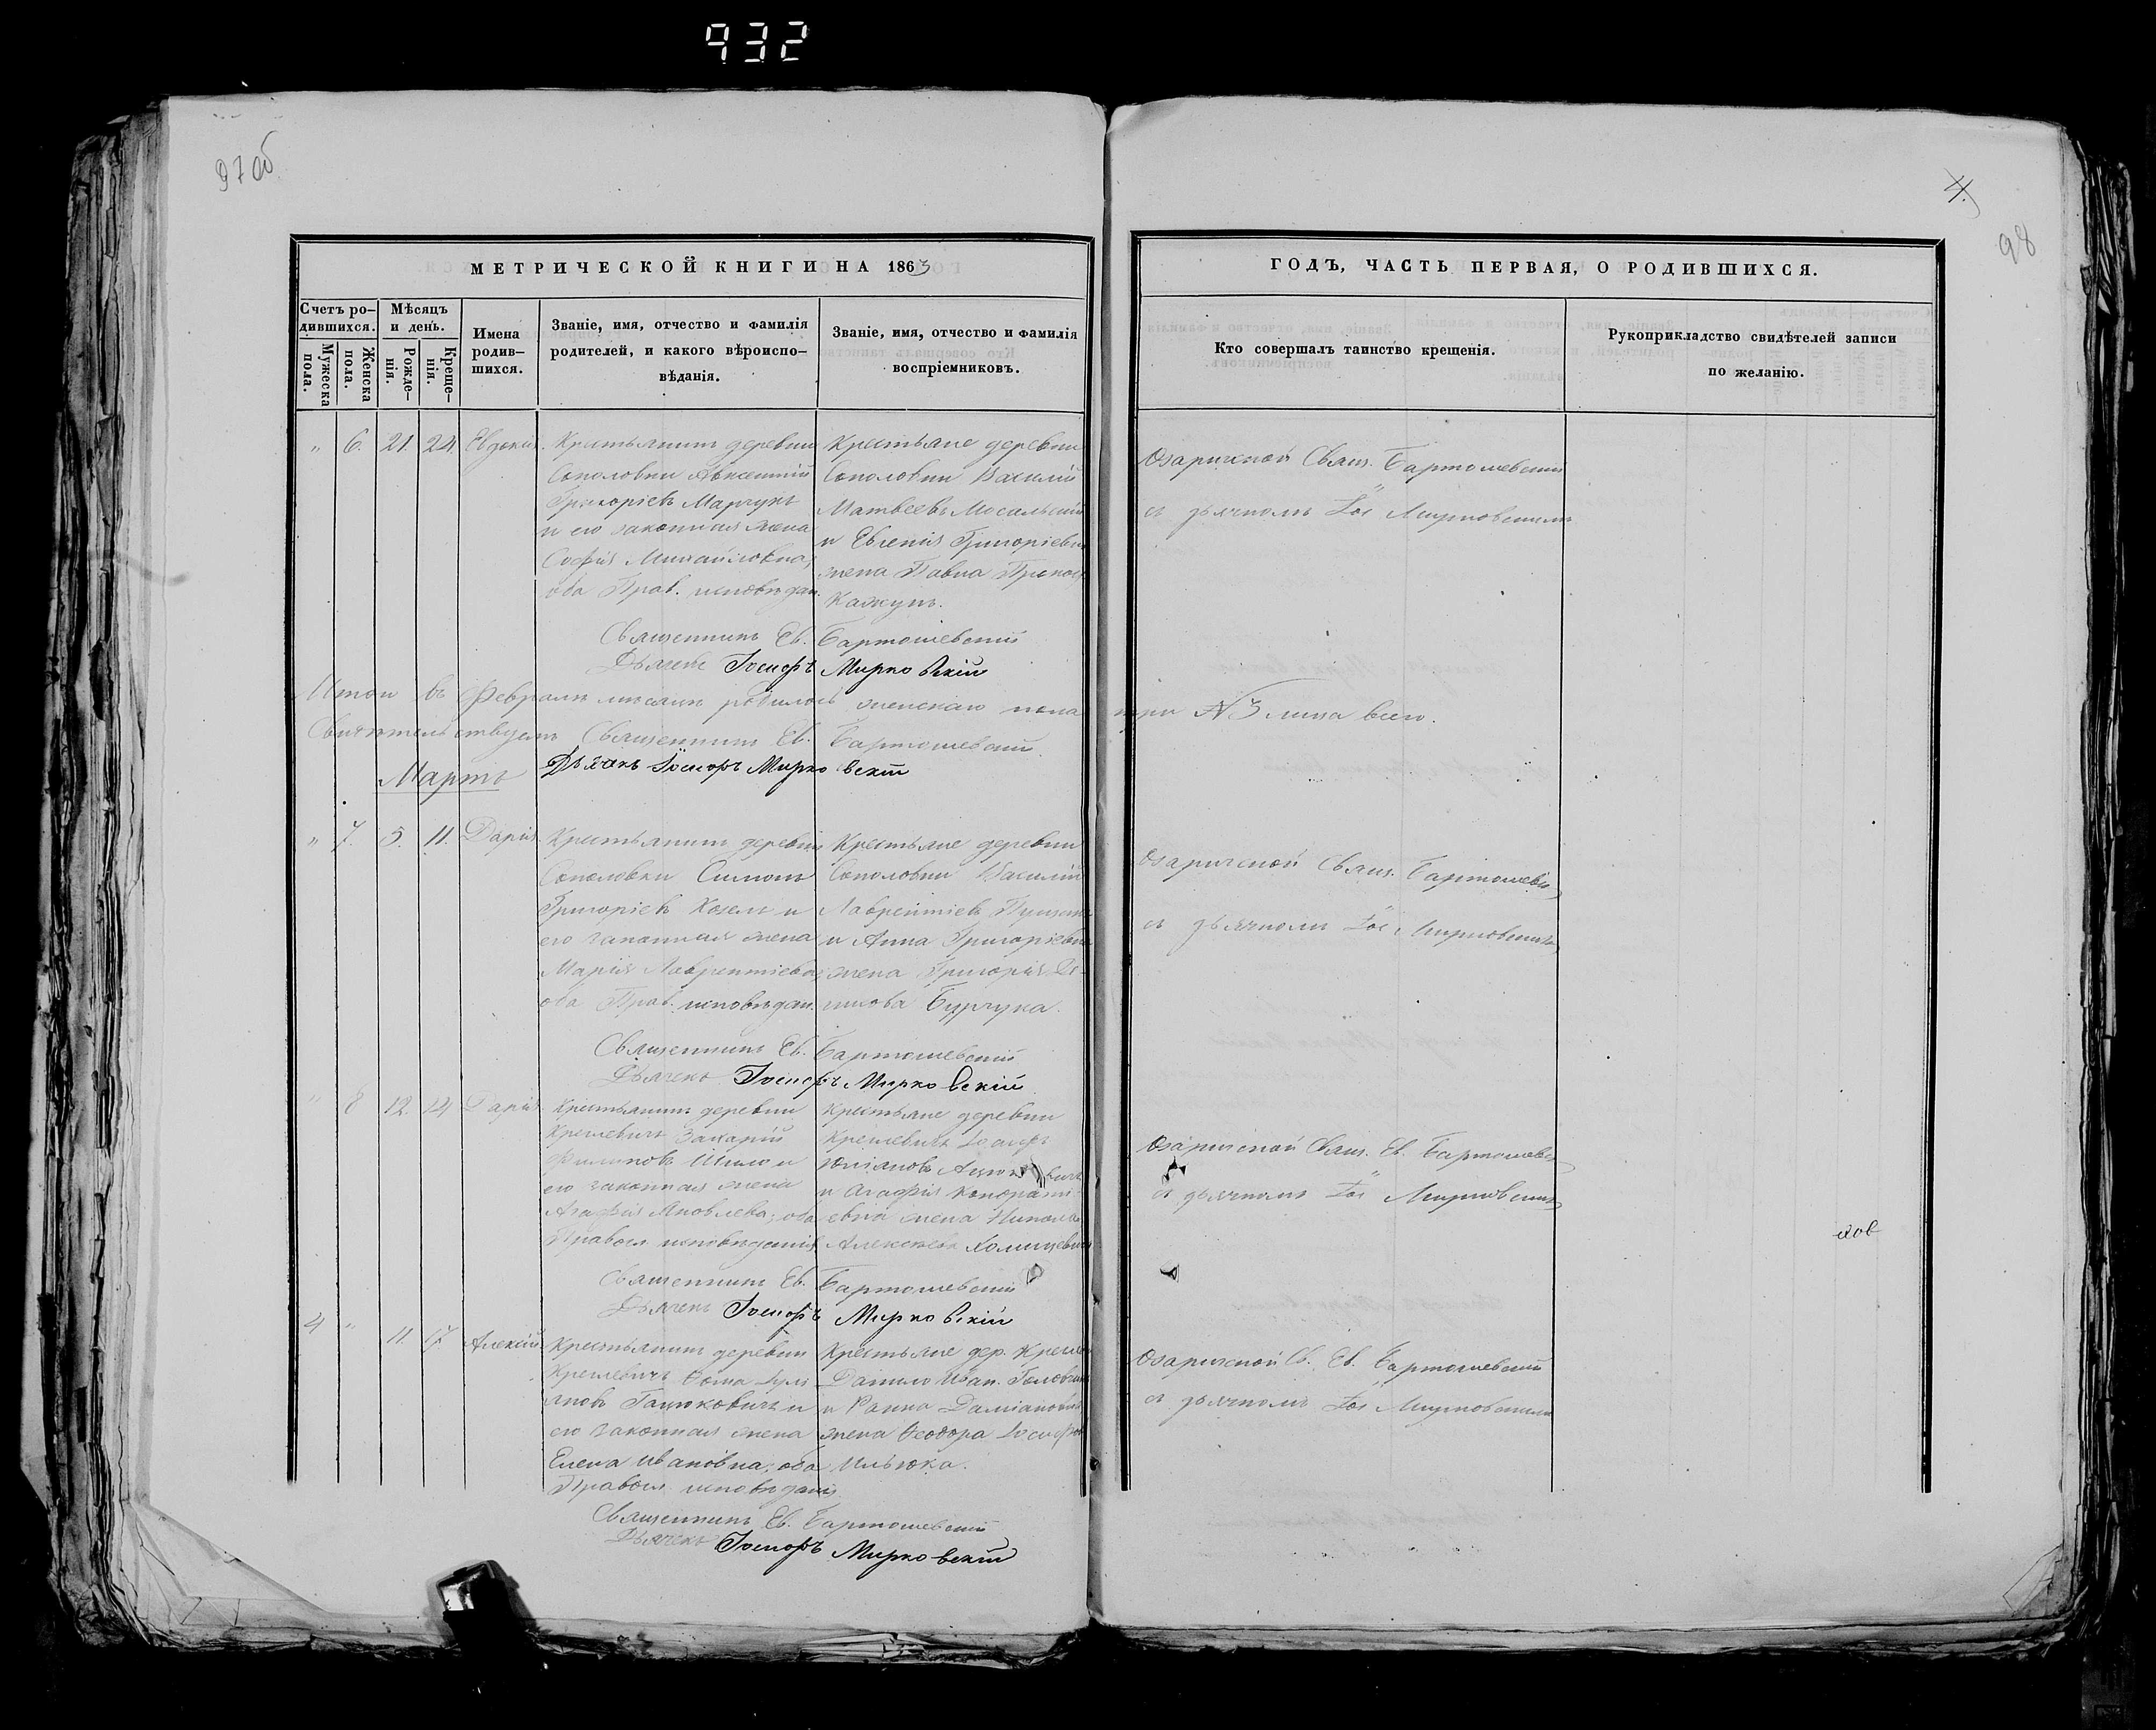 932
97 об
4.
98
МЕТРИЧЕСКОЙ КНИГИ НА 1863
ГОДЪ, ЧАСТЬ ПЕРВАЯ, О РОДИВШИХСЯ.
Счетъ ро-
дившихся.
Мужеска
пола.
Женска
пола.
Мѣсяцъ
и день.
Рожде-
нія.
Креще-
нія.
Имена
родив-
шихся.
Званіе, имя, отчество и фамилія
родителей, и какого вѣроиспо-
вѣданія.
Званіе, имя, отчество и фамилія
воспріемниковъ.
Кто совершалъ таинство крещенія.
Рукоприкладство свидѣтелей записи
по желанію.
" 6. 21. 24. Евдокія.
Крестьянинъ деревни
Соколовки Авксентій
Григоріевъ Марчукъ
и его законная жена
Софія Михайловна,
оба Прав. исповѣдан.
Крестьяне деревни
Соколовки Василій
Матвеевъ Мосальскій
и Евгенія Григоріевна
жена Павла
Кажунъ.
Озаричской Свящ. Бартошевскій
съ дьячкомъ Іос. Мирковскимъ
Священникъ Ев. Бартошевскій
Дьячекъ Іосифъ Мирковскій
Итого въ Февралѣ мѣсяцѣ родилось женскаго пола три № 3 лица всего.
Свидѣтельствуемъ Священникъ Ев. Бартошевскій
Дьячекъ Іосифъ Мирковскій
Мартъ
" 7. 5. 11. Дарія
Крестьянинъ деревни
Соколовки Симонъ
Григоріевъ Козелъ и
его законная жена
Марія Лаврентіева,
оба Прав. исповѣдан.
Крестьяне деревни
Соколовки Василій
Лаврентіевъ
и Анна Григоріевна
жена Григорія Де-
Бурчука.
Озаричской Свящ. Бартошевскій
съ дьячкомъ Іос. Мирковскимъ
Священникъ Ев. Бартошевскій
Дьячекъ Іосифъ Мирковскій
" 8 12. 14 Дарія
Крестьянинъ деревни
Кремевичъ Захарій
Филиповъ Шило и
его законная жена
Агафія Яковлева, оба
Правосл. исповѣданія
Крестьяне деревни
Кремевичъ Іосифъ
Юліановъ
и Агафія Кондрати-
евна жена Никола
Алексѣева Холицевича
Озаричской Свящ. Ев. Бартошевскій
съ дьячкомъ Іос. Мирковскимъ
Священникъ Ев. Бартошевскій
Дьячекъ Іосифъ Мирковскій
4 " 11. 17. Алексій.
Крестьянинъ деревни
Кремевичъ Ѳома Іулі-
яновъ Гацюковичъ и
его законная жена
Елена Ивановна, оба
Правосл. исповѣданія.
Крестьяне дер. Кремев
Данило Иван.
и Ганна Даміановна
жена Ѳеодора Іосифов
Ильюка.
Озаричской Св. Ев. Бартошевскій
съ дьячкомъ Іос. Мирковскимъ
Священникъ Ев. Бартошевскій
Дьячекъ Іосифъ Мирковскій